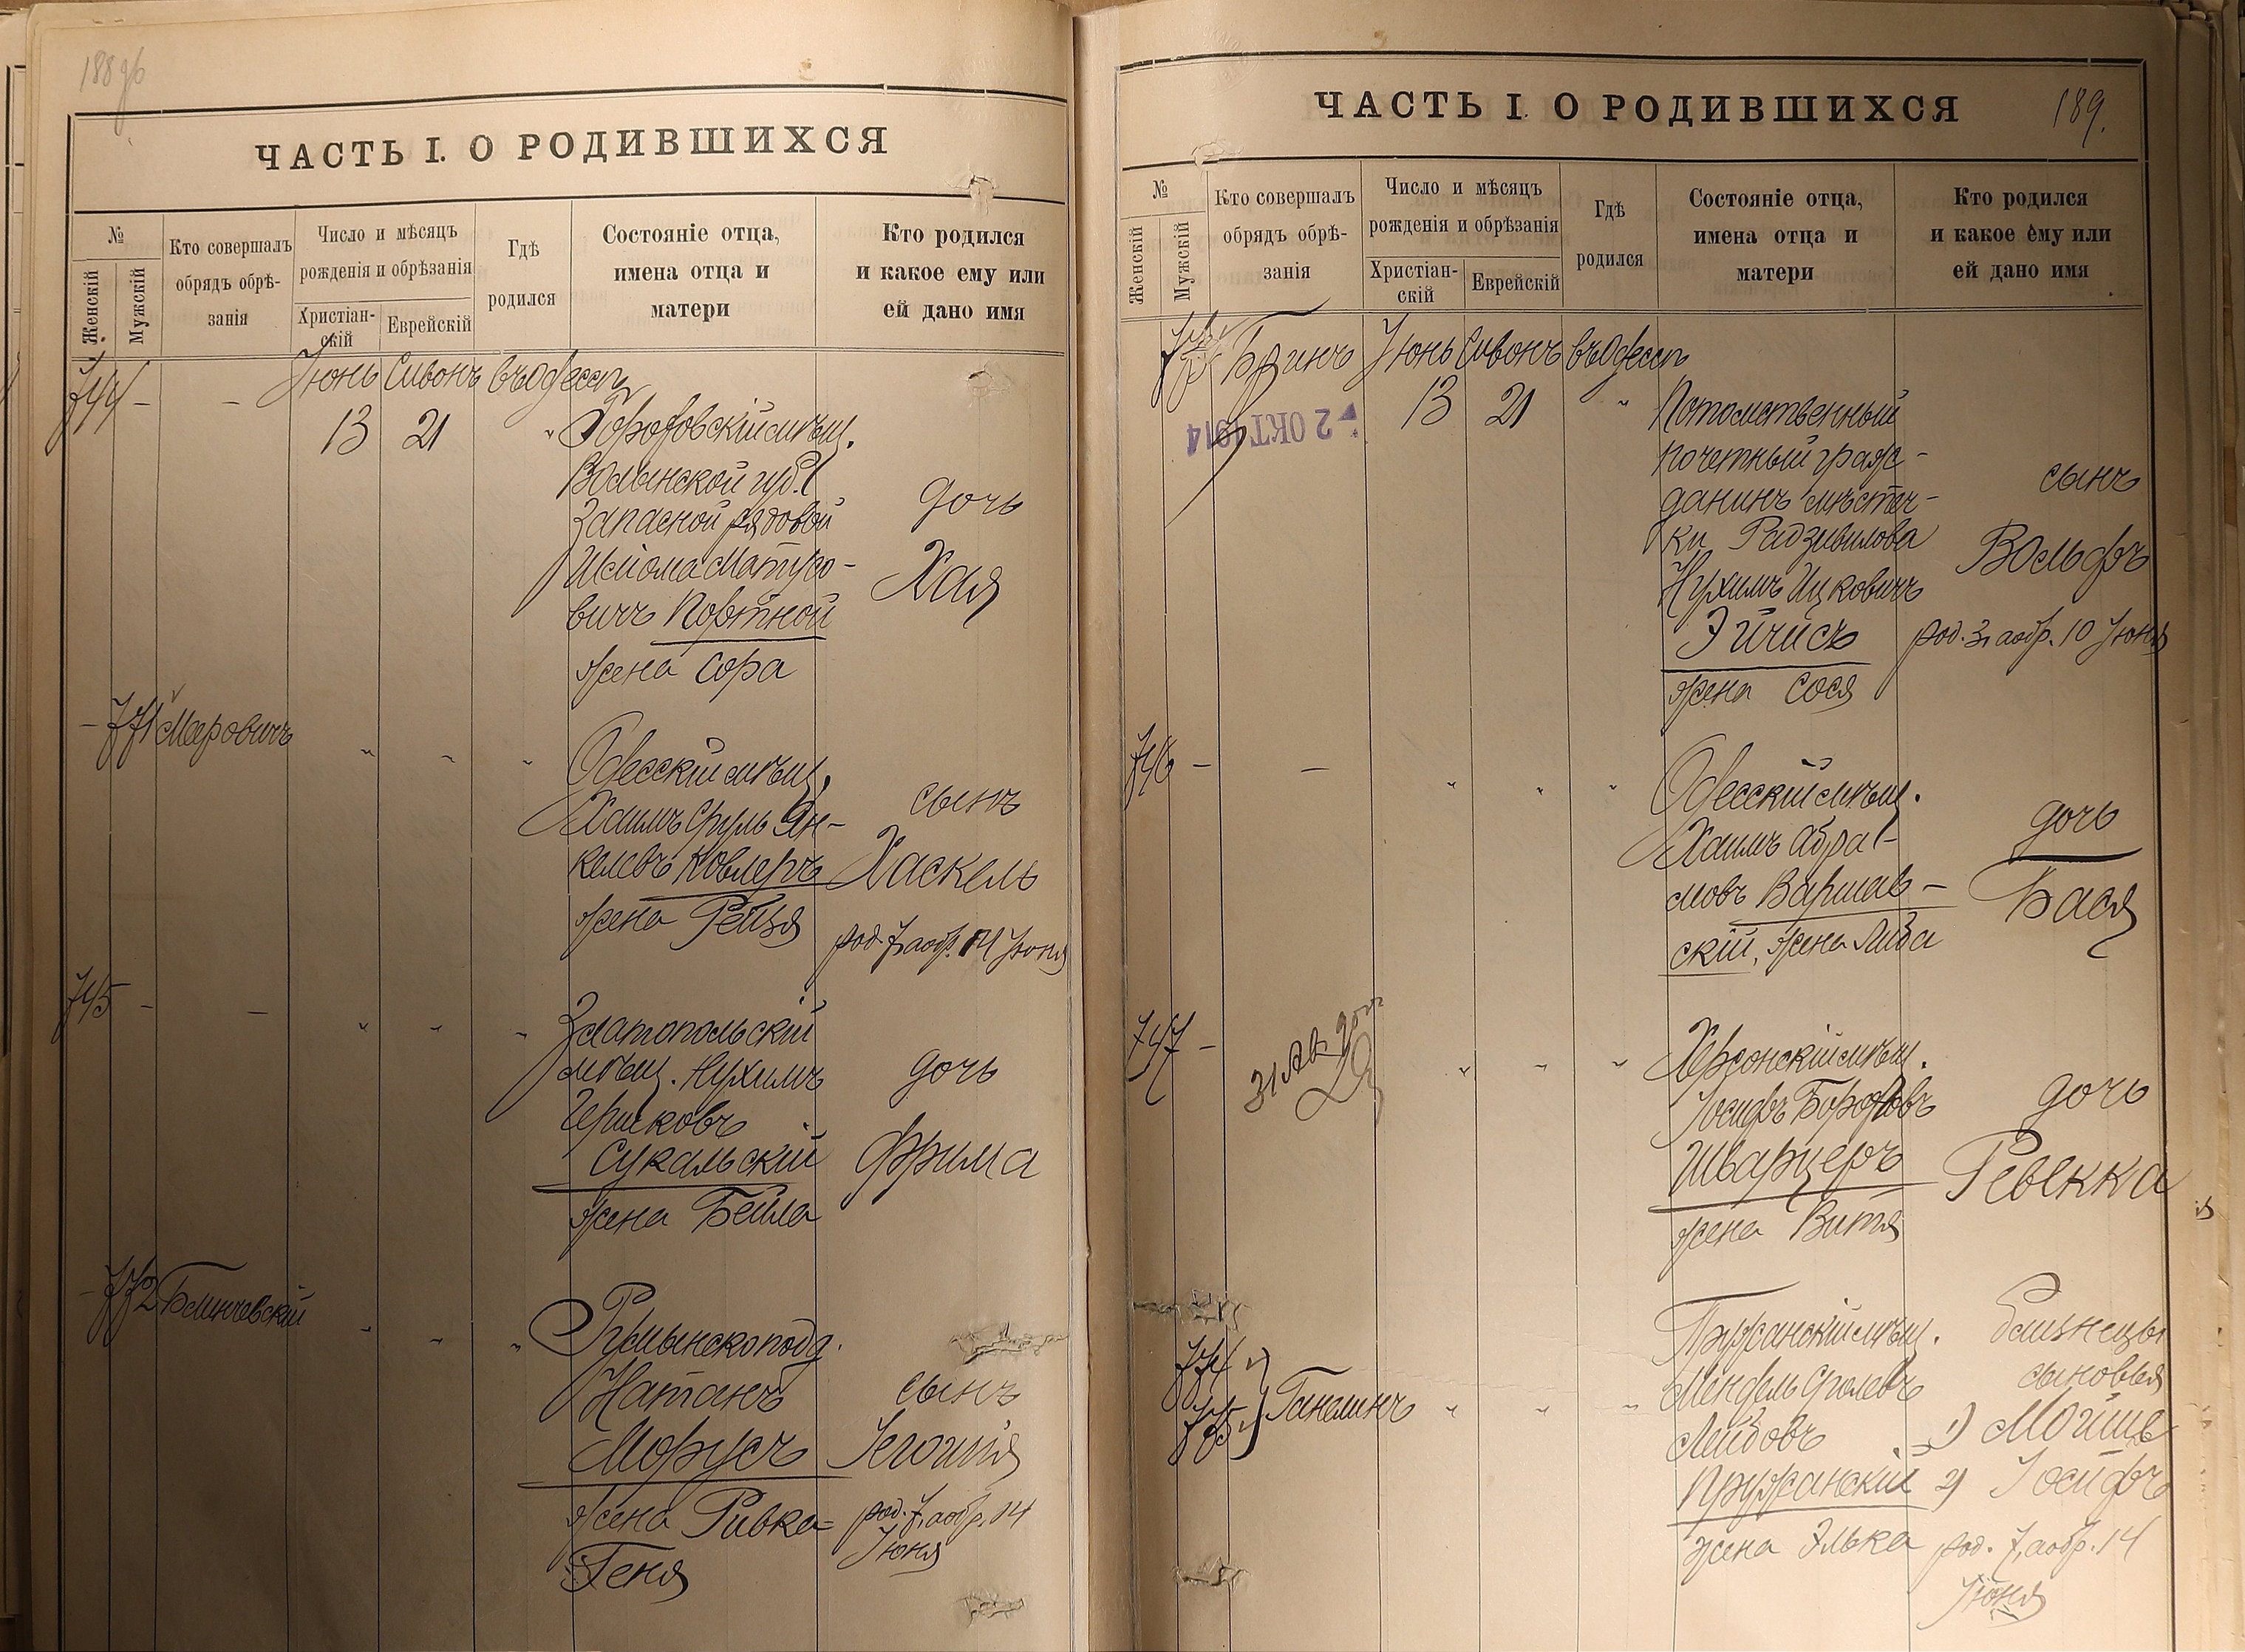 188об
ЧАСТЬ I. О РОДИВШИХСЯ
№
Женскій
Мужскій
Кто совершалъ
обрядъ обрѣ-
занія
Число и мѣсяцъ
рожденія и обрѣзанія
Христіан-
скій
Еврейскій
Гдѣ
родился
Состояніе отца,
имена отца и
матери
Кто родился
и какое ему или
ей дано имя
744 - - Іюнь Сивонъ въ Одессѣ
13 21 " мѣщ.
Волынской губ.
Запасной рядовой
дочь
Шліома Матусо-
Хая
вичъ Портной
жена Сора
- 771 Меровичъ " " " Одесскій мѣщ.
Хаимъ Сруль Ян-
сынъ
келевъ Ковлеръ
Хаскель
жена Рейзя
род. 7, а обр. 14 Іюня
745 - - " " " Златопольскій
мѣщ. Нухимъ
дочь
Гершковъ
Сукальскій
Фрима
жена Бейла
- 772 Блинчевскій " " " Румынскоподд.
Натанъ
сынъ
Морусъ
жена Ривка=
род. 7, а обр. 14
Іюня
Геня
189.
ЧАСТЬ I. О РОДИВШИХСЯ
№
Женскій
Мужскій
Кто совершалъ
обрядъ обрѣ-
занія
Число и мѣсяцъ
рожденія и обрѣзанія
Христіан-
скій
Еврейскій
Гдѣ
родился
Состояніе отца,
имена отца и
матери
Кто родился
и какое ему или
ей дано имя
Бринъ Іюнь Сивонъ въ Одессѣ
2 ОКТ 1914
13 21 " Потомственный
почетный граж-
данинъ мѣстеч-
сынъ
ки Радзивилова
Вольфъ
Нухимъ Ицковичъ
Эйчисъ
род. 3, а обр. 10 Іюня
жена Сося
746 - - " " " Одесскій мѣщ.
Хаимъ Абра-
дочь
мовъ Варшав-
Бася
скій, жена Либа
747 - " " " Херсонскій мѣщ.
31 Ав.
Іосифъ Боруховъ
дочь
Шварцеръ
Ревекка
жена Витя
774
775 Ганелинъ " " " Пружанскій мѣщ.
близнецы
Мендель Сролевъ
сыновья
Лейбовъ
1) Мойше
Пружанскій
2) Іосифъ
жена Элька
род. 7, а обр. 14
Іюня